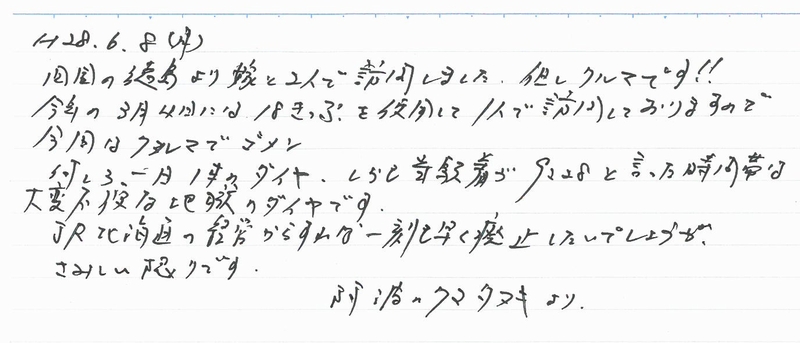 H28.6.8(水)
四国の徳島より嫁と2人で訪問しました。但しクルマでです!!
今年の3月4日には18きっぷを使用して1人で訪問しておりますので
今回はクルマでゴメン
何しろ、一日1本のダイヤ、しかも首都着が 928と言った時間帯は
大変不便な地獄のダイヤです。
JR北海道の経営からすれば一刻も早く廃止したいでしょうが、
さみしい限りです。
阿波のクマタヌキより。